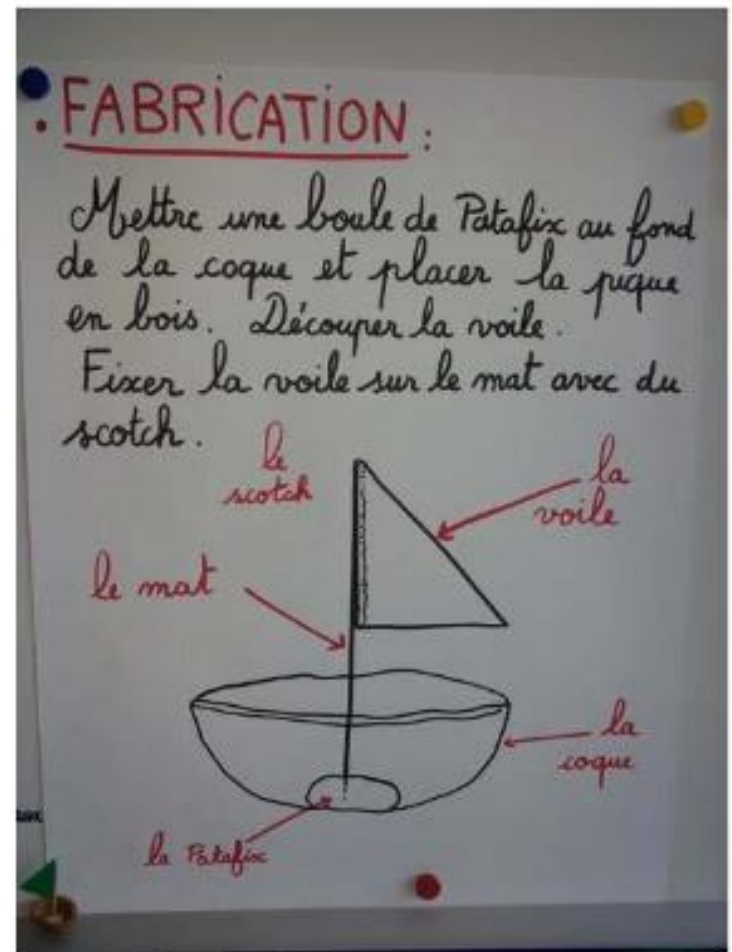 . FABRiCATiON :
Mettre une boule de Patafix au fond
de la coque et placer la pique
en bois. Découper la voile.
Fixer la voile sur le mat avec du
scotch.
le
scotch
la
voile
le mat
la
coque
la Patafix